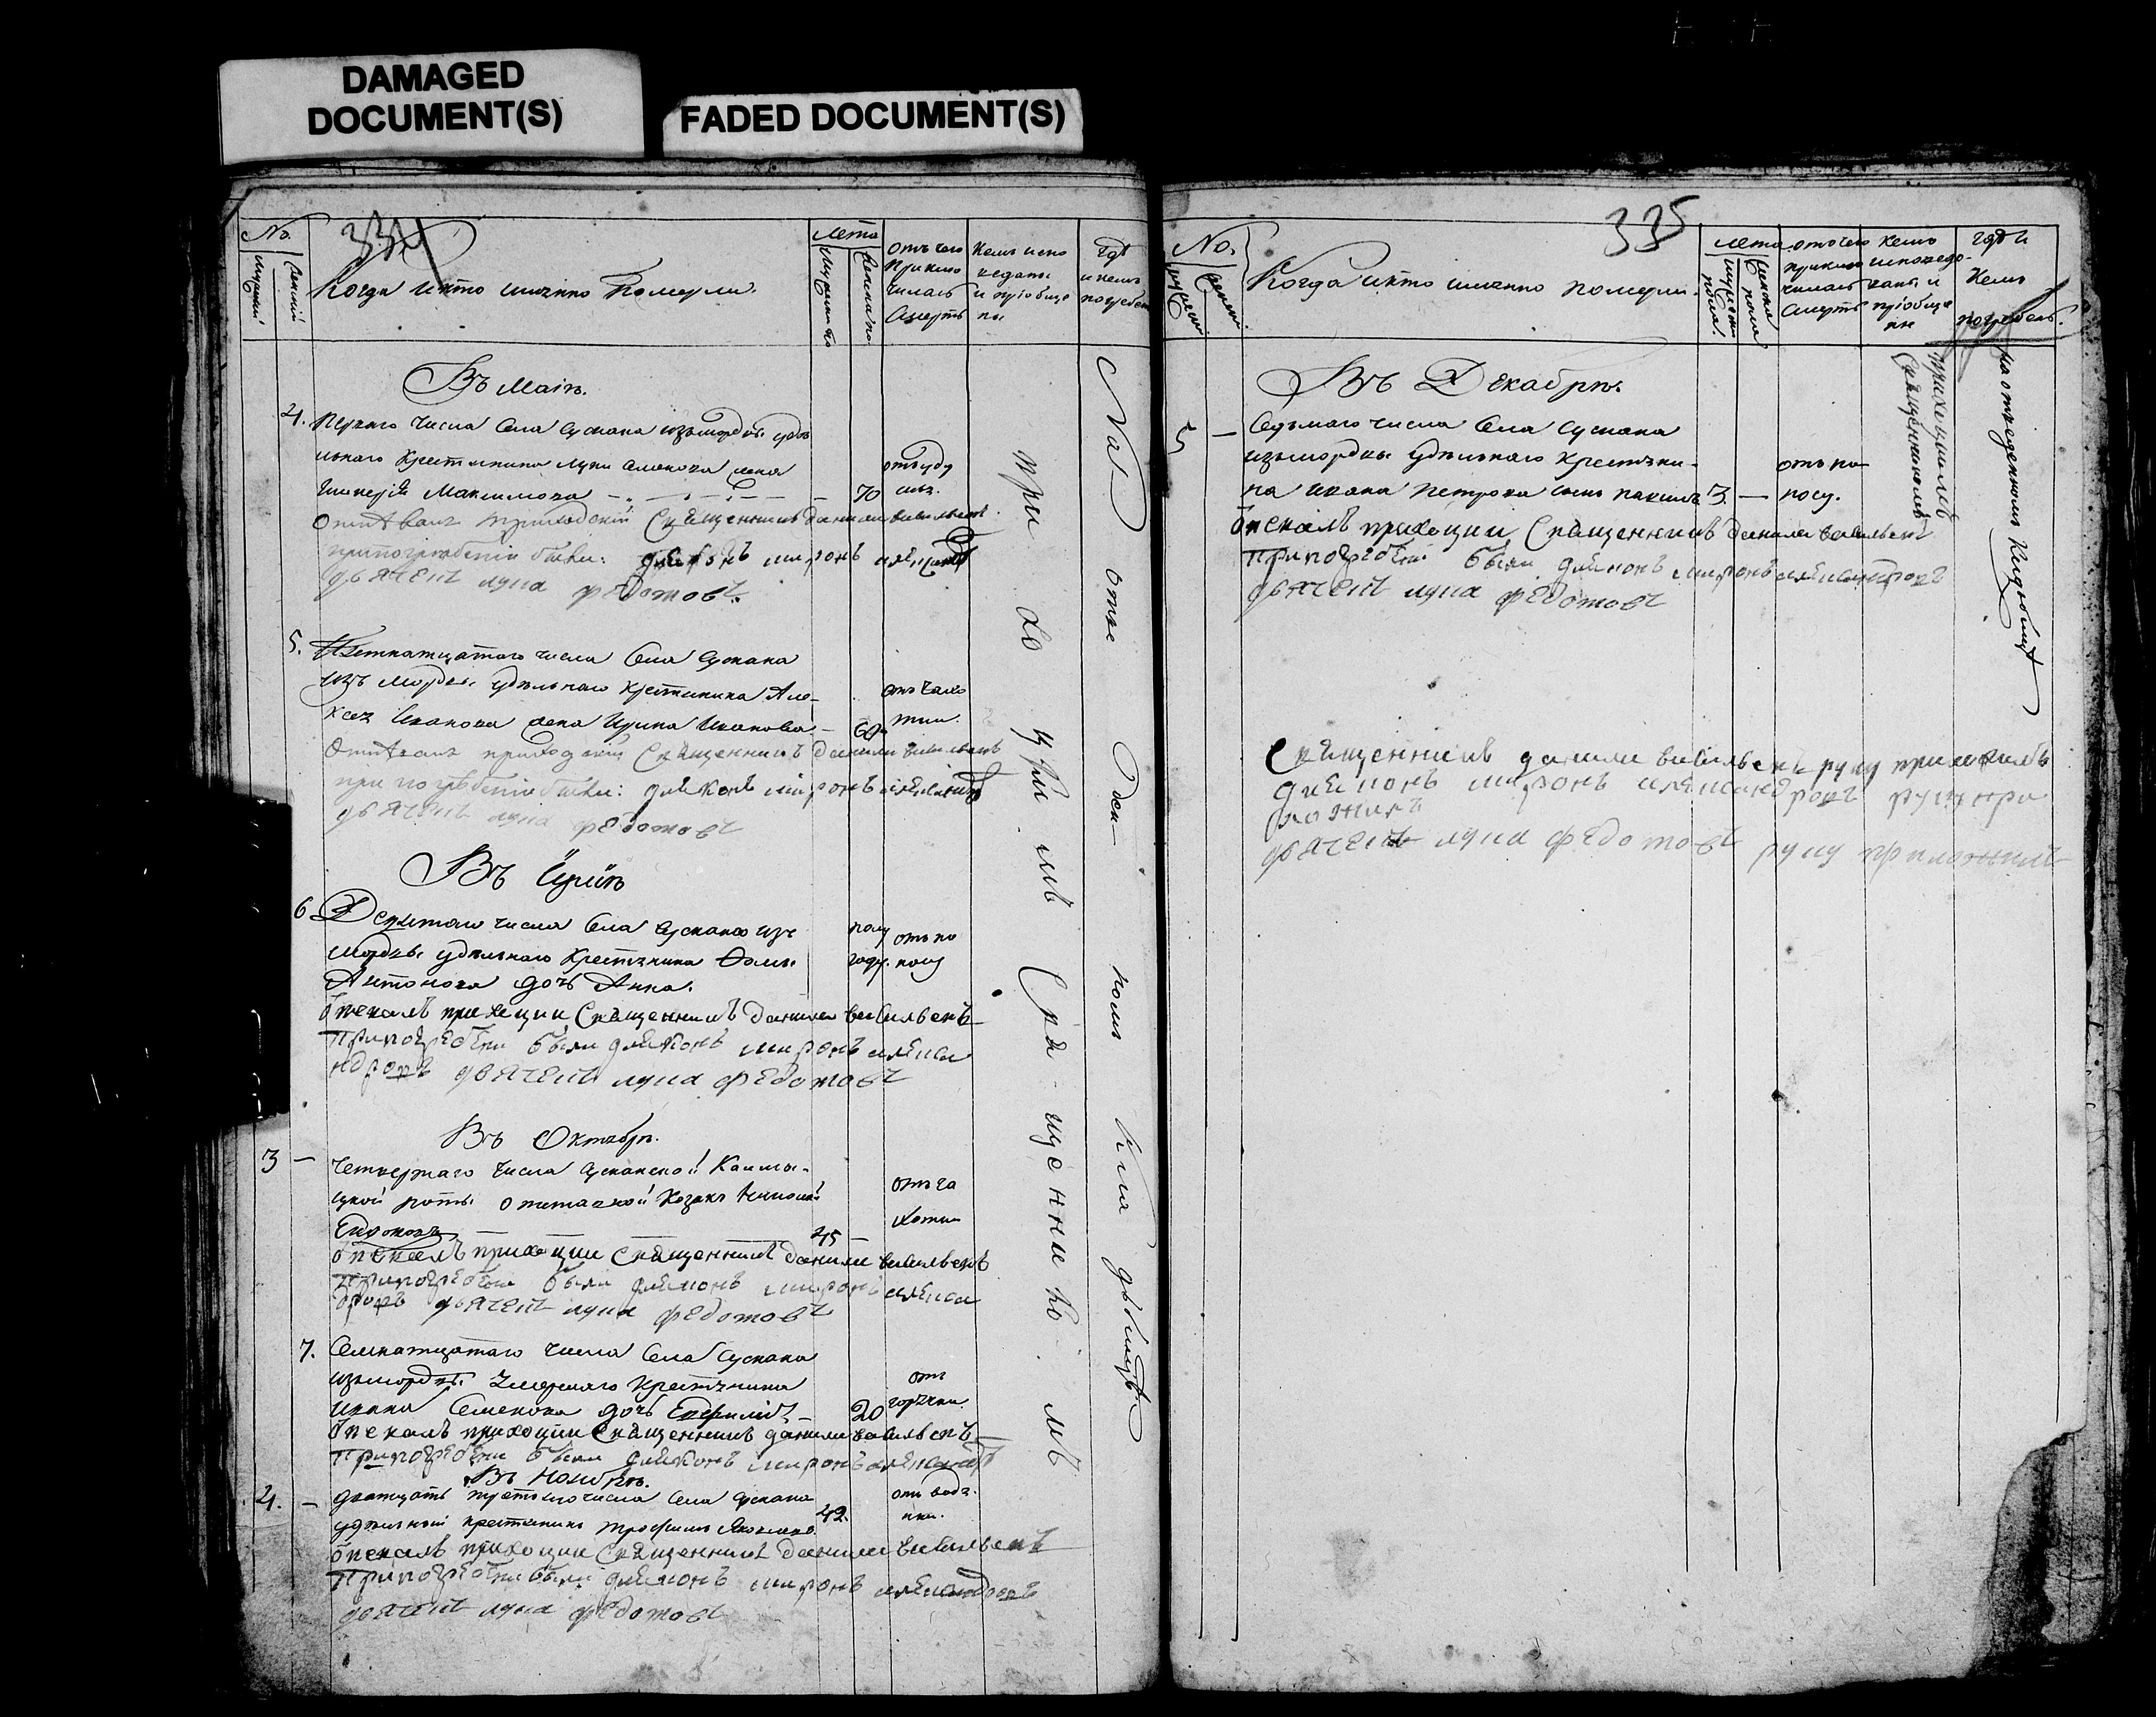 DAMAGED
DOCUMENT(S)
FADED DOCUMENT(S)
334
No.
мужескій
женскій
Когда и кто имянно Померли.
лета
мужеска по
женска по
отъ чего
приклю
чилась
Смерть
Кемъ испо
веданы
и пріобще
ны
Гдѣ
и кемъ
погребены
Въ Маіѣ.
4. Перваго числа Села Сускана изъ мордвы удѣ
льнаго Крестьянина Луки Семенова жена
Максимова 70
отъ уду
шья.
Отпѣвалъ приходскій Священникъ Данила Васильевъ.
при погребеніи были: діаконъ миронъ александр
дьячекъ лука федотовъ.
5. Пятнатцатаго числа Села Сускана
изъ Мордвы удѣльнаго Крестьянина Але-
ксея Иванова жена Ирина Иванова - 60
отъ чахо
тки.
Отпѣвалъ приходскій Священникъ Данила Васильевъ
при погребеніи были: діаконъ миронъ александр
дьячекъ лука федотовъ
Въ Іуліѣ
6. Девятаго числа Села Сускана изъ
мордвы удѣльнаго Крестьянина Фомы
Антонова дочь Анна.
полу
году.
отъ по
носу
Опевалъ прихоцки Священникъ данила васильевъ
при погребени были діаконъ миронъ алекса
ндровъ дьячекъ лука федотовъ
Въ Октябрѣ.
3 - Четвертаго числа Сусканской Калмы-
цкой роты отставной Козакъ Николай
45 -
отъ ча
хотки
опевалъ прихоцки Священникъ данила васильевъ
при погребени были діаконъ миронъ алекса
дровъ дьячекъ лука федотовъ
7. Семнатцатаго числа Села Сускана
изъ мордвы Крестьянина
Ивана Семенова дочь - 20
отъ
горячки
Опевалъ прихоцки Священникъ данила васильевъ
при погребени были діаконъ миронъ александр
Въ Ноябрѣ.
4. - дватцать третьяго числа Села Сускана
удѣльный крестьянинъ Трофимъ Яковлевъ 42.
отъ водя
нки.
опевалъ прихоцки Священникъ данила васильевъ
при погребени были діаконъ миронъ александровъ
дьячекъ лука федотовъ
при хо цкимъ Священникомъ
На отве денномъ Кладбищѣ
335
No.
мужески
женски
Когда и кто имянно померли.
лета
мужеска
пола
женска
пола
отъ чего
приклю
чилась
смерть
кемъ
исповедо-
ваны и
пріобще
ны
гдѣ и
Кемъ
погребены.
Въ Декабрѣ.
5 - Седьмаго числа Села Сускана
изъ мордвы Удѣльнаго Крестьяни-
на Ивана Петрова сынъ 3. -
отъ по
носу.
Опевалъ прихоцки Священникъ данила васильевъ
при погребени были діаконъ миронъ александровъ
дьячекъ лука федотовъ
прихоцкимъ
Священникомъ
на отведенномъ Кладбищѣ
Священникъ данила васильевъ руку приложилъ
діаконъ миронъ александровъ руку при
ложилъ
дьячекъ лука федотовъ руку приложилъ